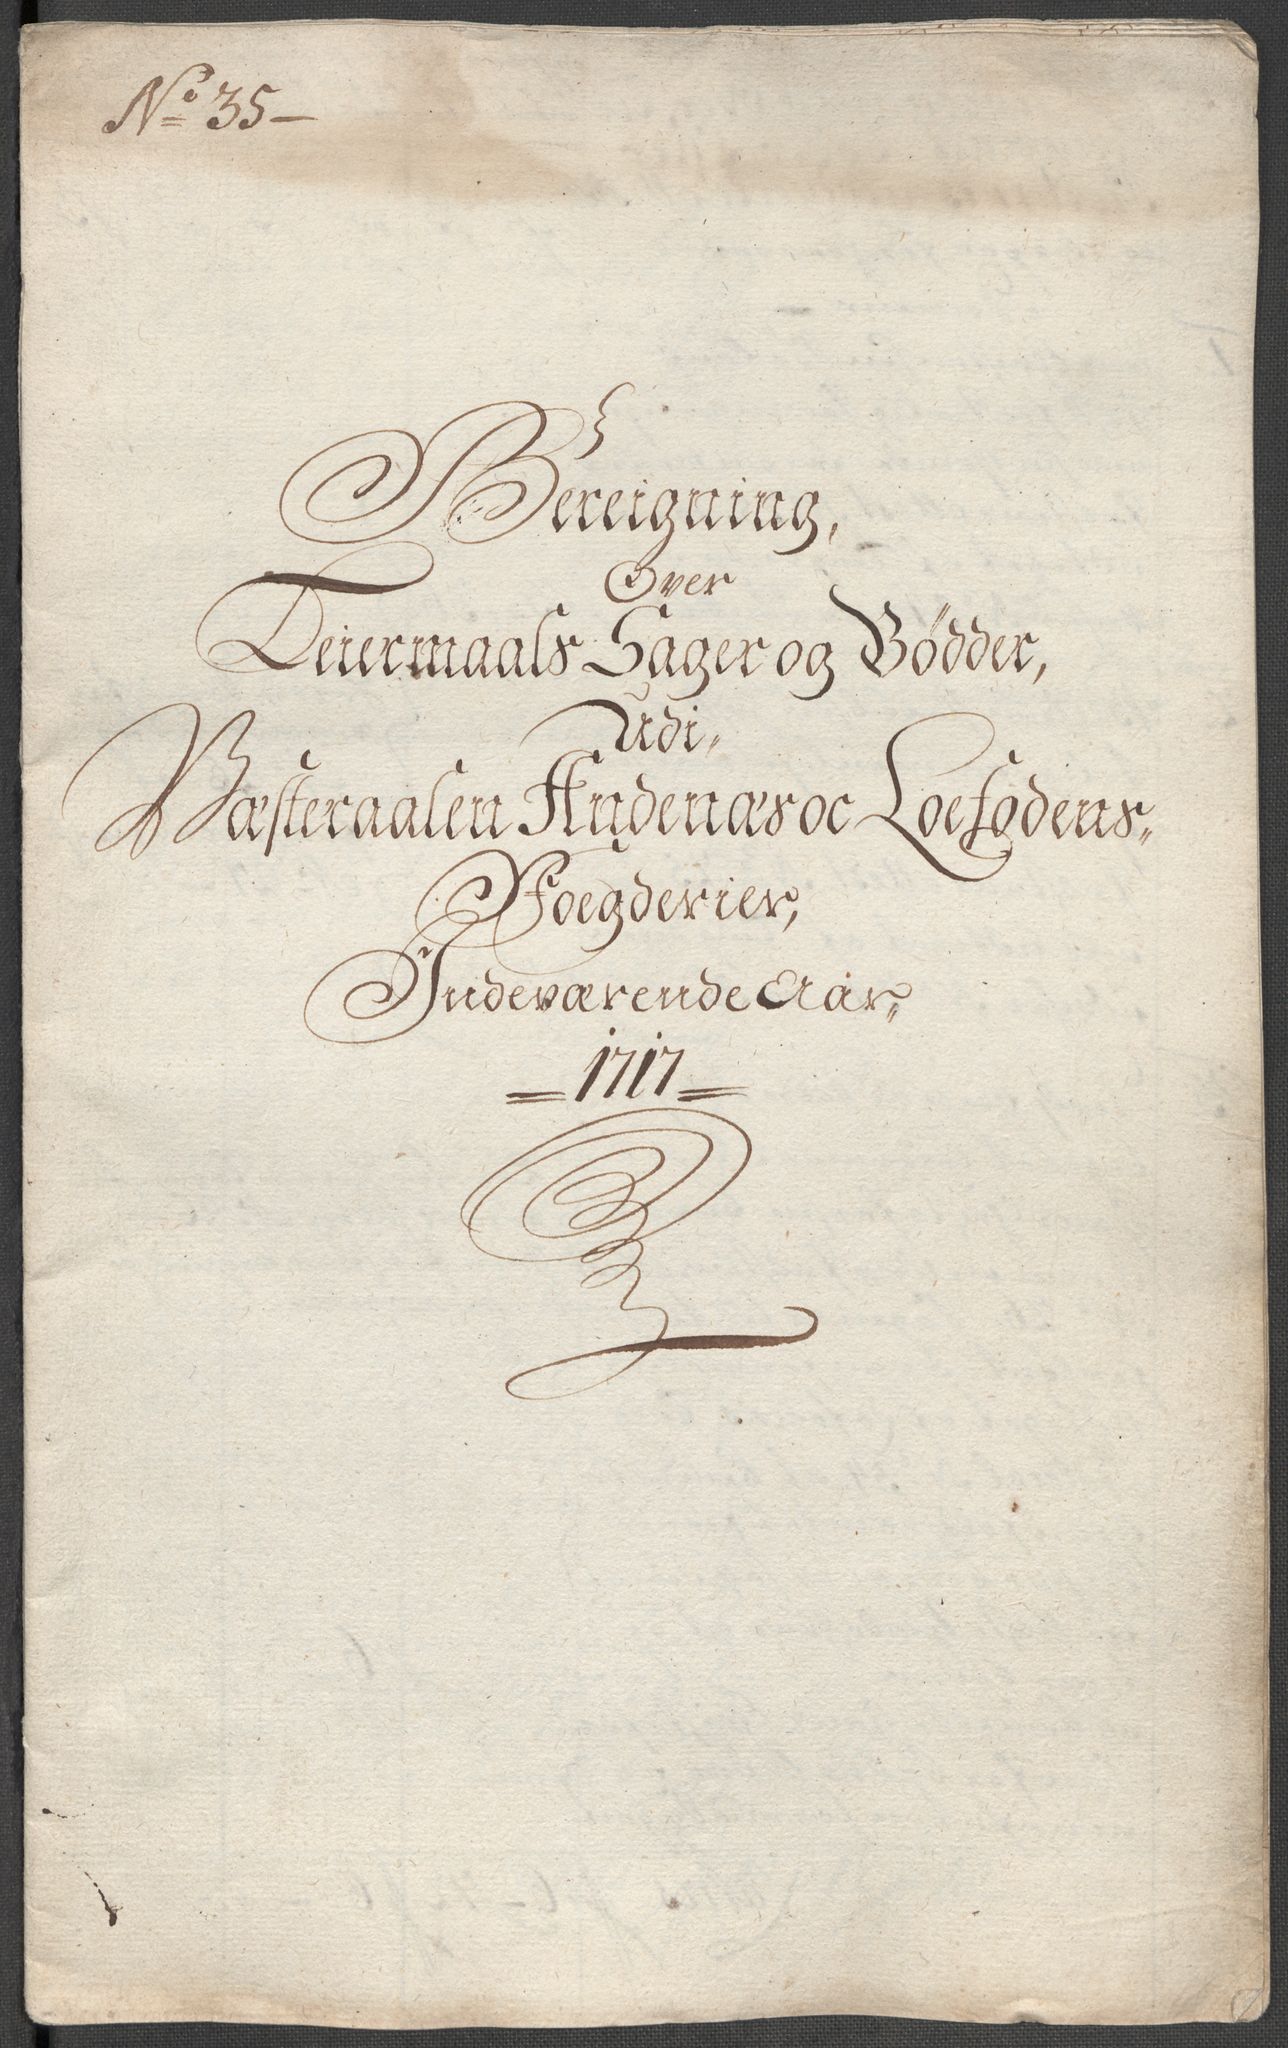 No 35-
Bereigning,
Over
Leiermaals Sager og Bödder,
Udi,
Væsteraalen Andenæs oc Loefodens
Foegderier,
Indeværende Aar,
1717